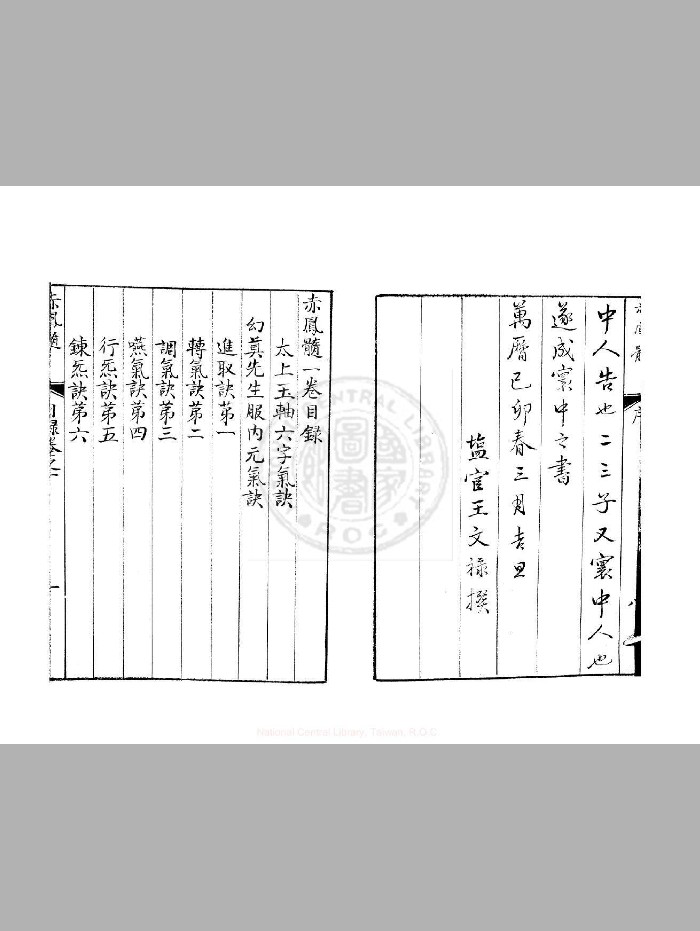 中人告也二三子又寰中人也
遂成寰中之書
萬曆己卯春三月吉旦
塩官王文祿撰
赤鳳髓一卷目録
太上玉軸六字氣訣
幻真先生服内元氣訣
進取訣第一
轉氣訣第二
調氣訣第三
嚥氣訣第四
行炁訣第五
錬炁訣第六
赤鳳髓
目録卷之一
National Central Library, Taiwan, R.O.C